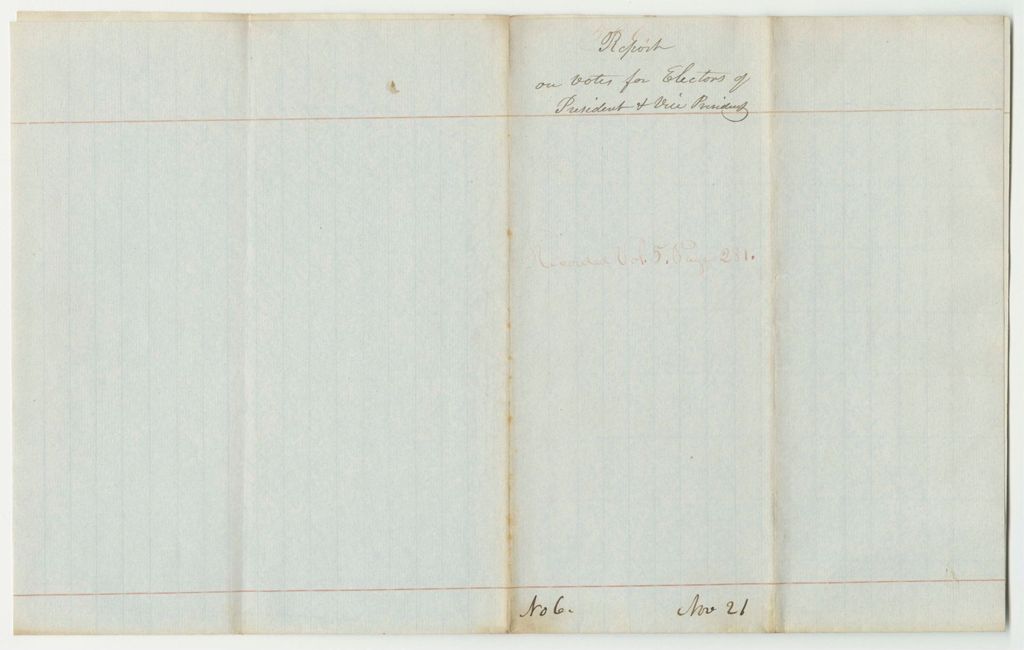 Report
on votes for Electors of
President & Vice President
Recorded Vol. 5. Page 281.
No 6.
Nov 21